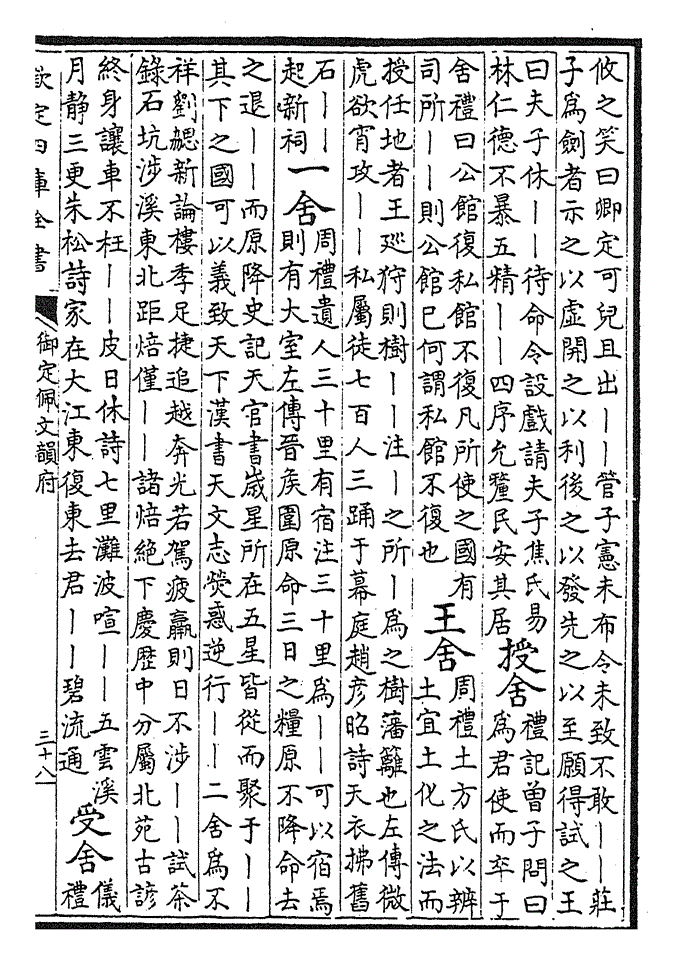 攸之笑曰卿定可兒且出丨丨管子憲未布令未致不敢丨丨莊
子爲劍者示之以虛開之以利後之以發先之以至願得試之王
曰夫子休丨丨待命令設戲請夫子焦氏易
林仁德不暴五精丨丨四序允釐民安其居
授舍
禮記曾子問曰
爲君使而卒于
舍禮曰公館復私館不復凡所使之國有
司所丨丨則公館已何謂私館不復也
王舍
周禮土方氏以辨
土宜土化之法而
授任地者王廵狩則樹丨丨注丨之所丨爲之樹藩籬也左傳微
虎欲宵攻丨丨私屬徒七百人三踊于幕庭趙彦昭詩天衣拂舊
石丨丨
起新祠
一舍
周禮遺人三十里有宿注三十里爲丨丨可以宿焉
則有大室左傳晉矦圍原命三日之糧原不降命去
之退丨丨而原降史記天官書嵗星所在五星皆從而聚于丨丨
其下之國可以義致天下漢書天文志熒惑逆行丨丨二舍爲不
祥劉勰新論樓季足捷追越奔光若駕疲羸則日不涉丨丨試茶
錄石坑涉溪東北距焙僅丨丨諸焙絶下慶歷中分屬北苑古諺
終身讓車不枉丨丨皮日休詩七里灘波喧丨丨五雲溪
月静三更朱松詩家在大江東復東去君丨丨碧流通
受舍
儀
禮
欽定四庫全書
御定佩文韻府
三十八